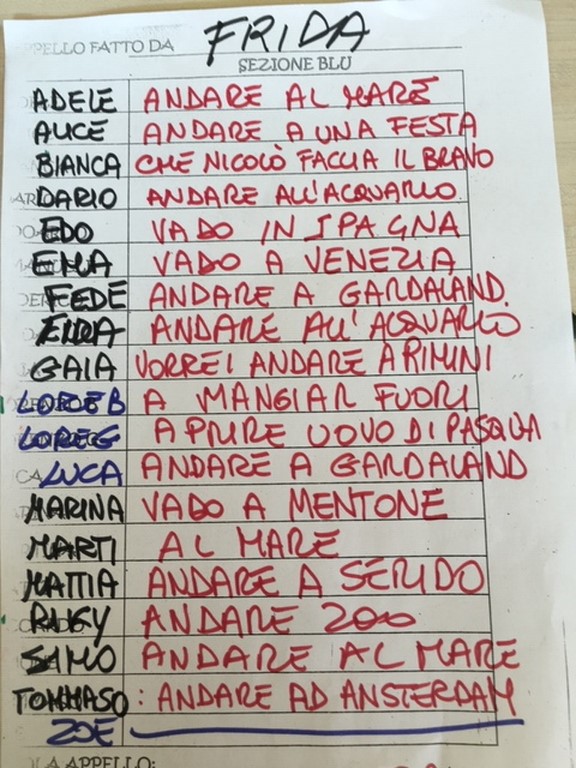 APPELLO FATTO DA FRIDA
SEZIONE BLU
ADELE ANDARE AL MARE
ALICE ANDARE A UNA FESTA
BIANCA CHE NICOLÒ FACCIA IL BRAVO
DARIO ANDARE ALL'ACQUARIO
EDO VADO IN SPAGNA
EMA VADO A VENEZIA
FEDE ANDARE A GARDALAND.
ANDARE ALL'ACQUARIO
GAIA VORREI ANDARE A RIMINI
LORE B A MANGIAR FUORI
LORE G APRIRE UOVO DI PASQUA
LUCA ANDARE A GARDALAND
MARINA VADO A MENTONE
MARTI AL MARE
MATTIA ANDARE A SERIDO
ANDARE ZOO
SIMO ANDARE AL MARE
TOMMASO : ANDARE AD AMSTERDAM
ZOE
APPELLO: